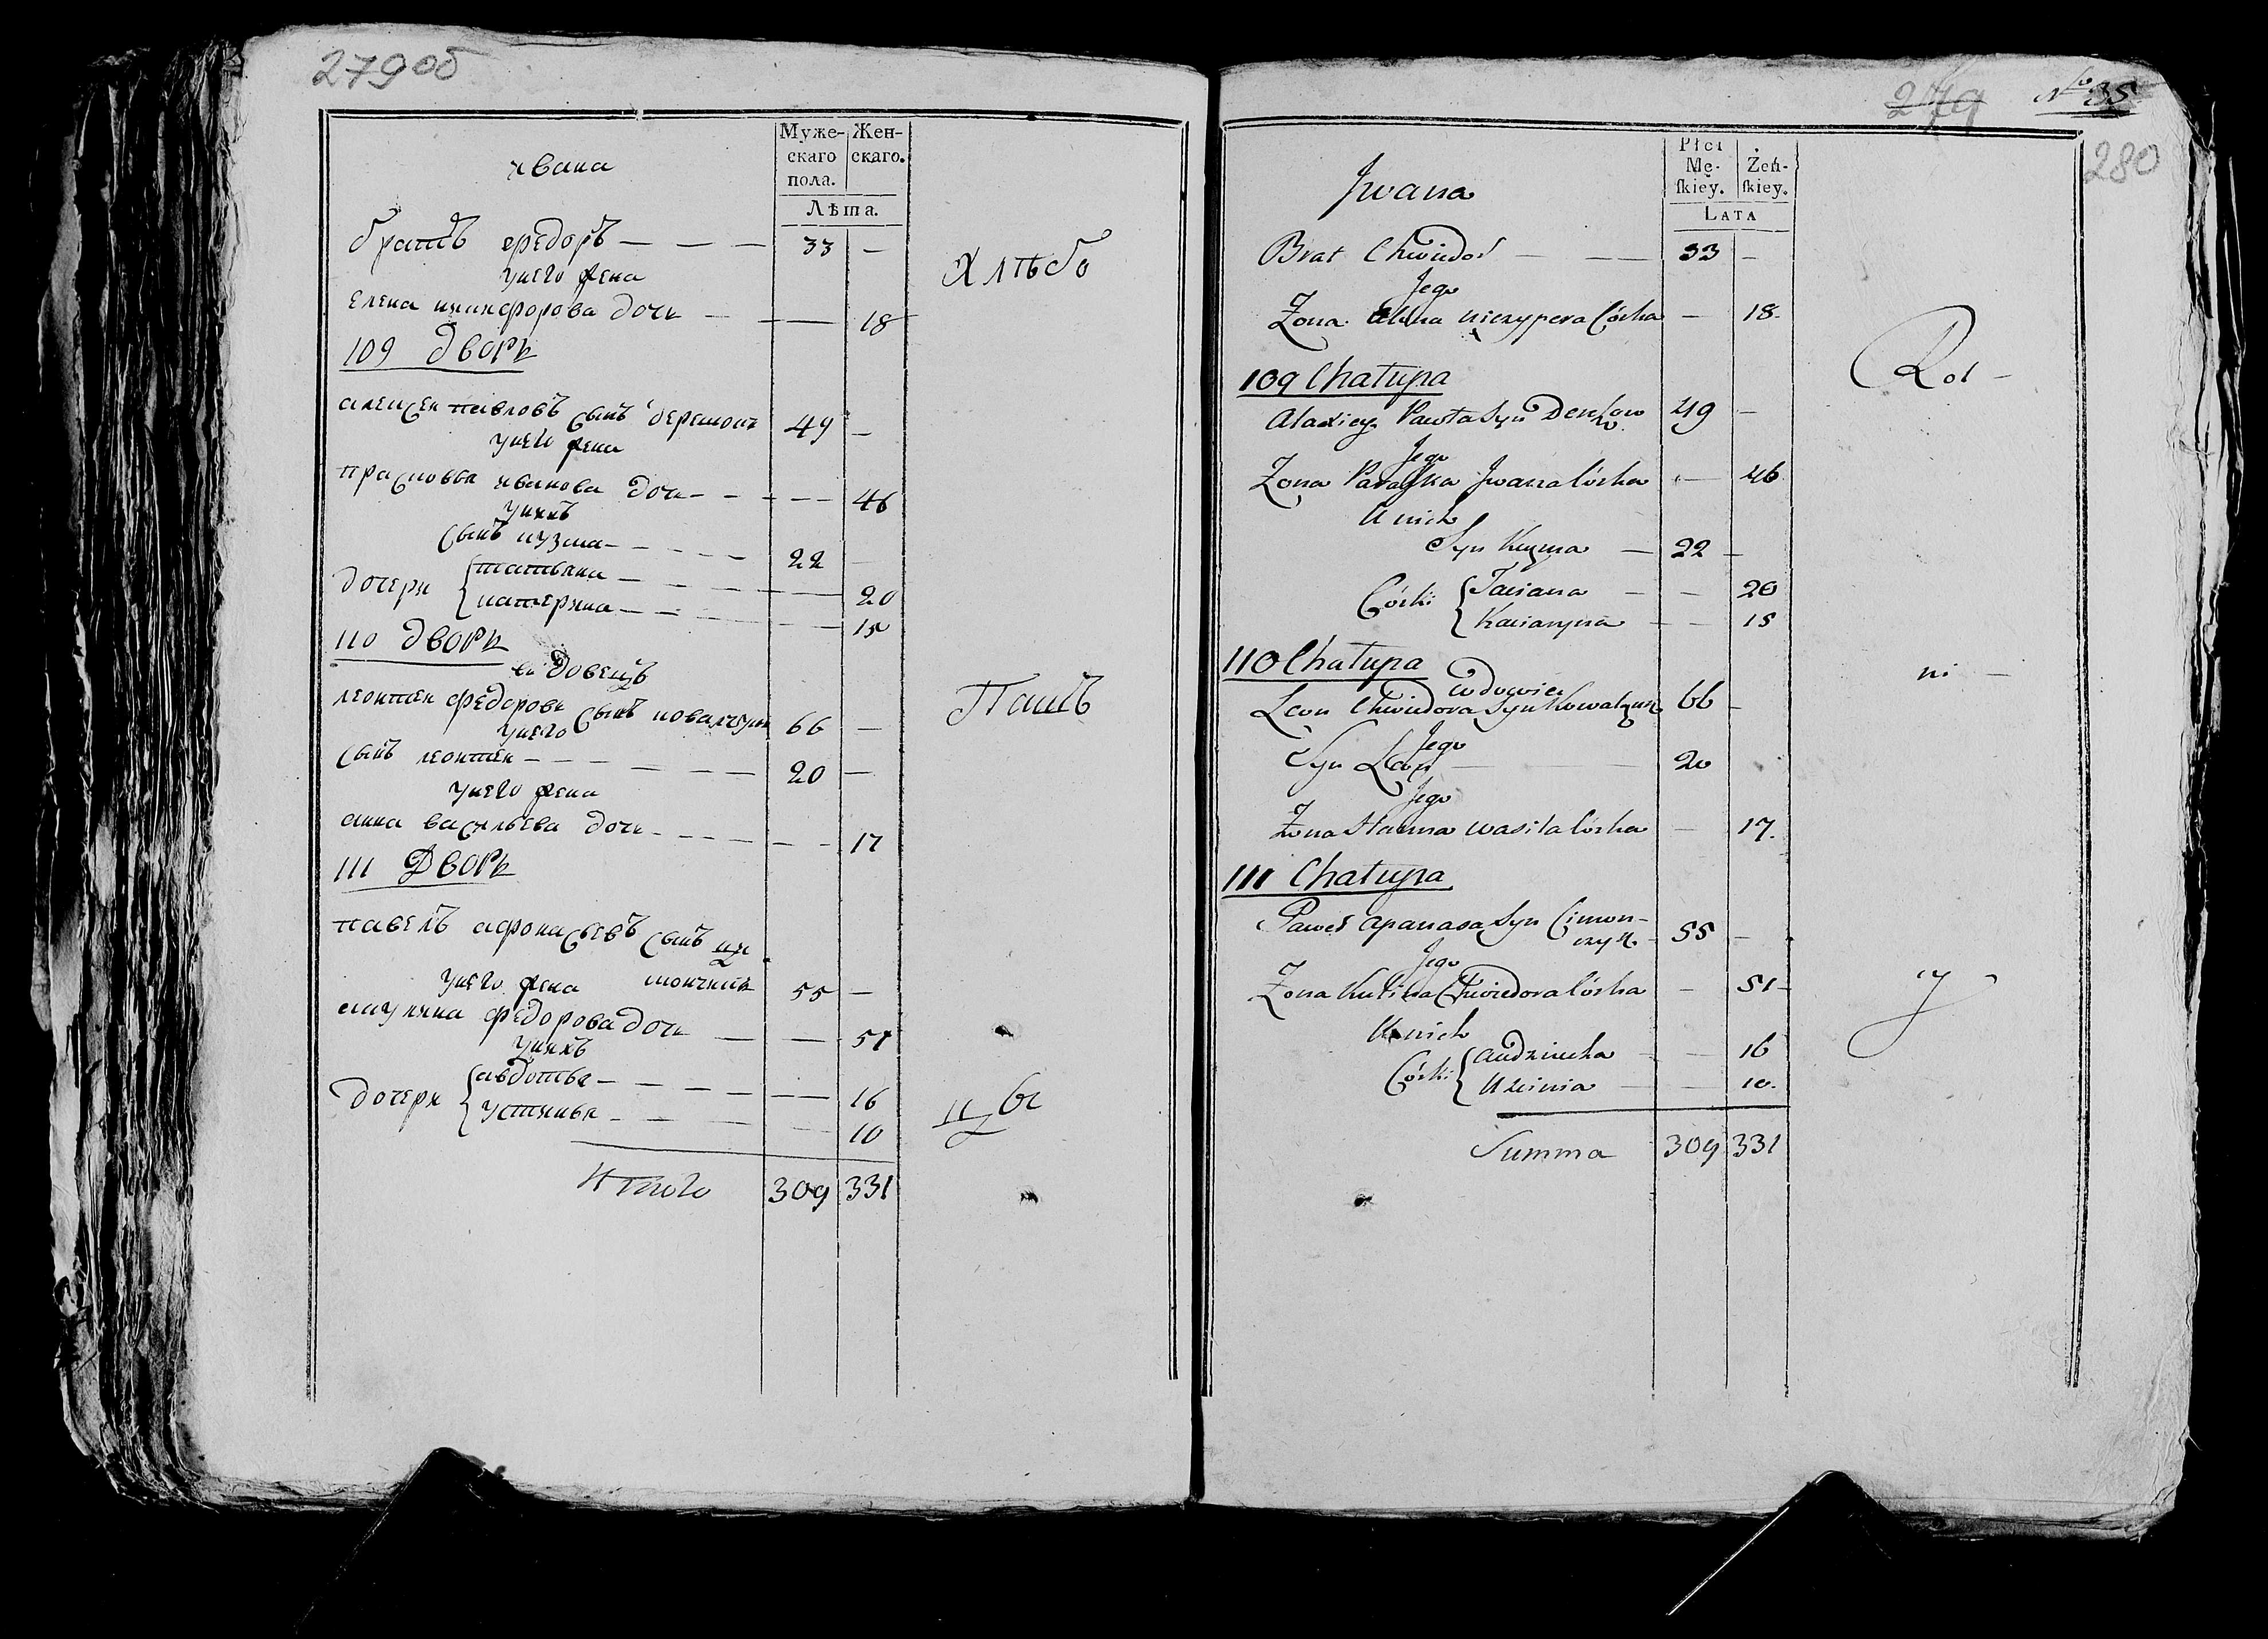 279об
Муже- Жен-
скаго скаго.
пола.
Лѣта.
ивана
братъ федоръ — — — 33 —
Унего жена
елена никифорова дочь — — 18
109 дворъ
алексеи павловъ сынъ 49 —
Унего жена
прасковья иванова дочь - - - — 46
Унихъ
сынъ кузма - - - - 22 —
дочери татьяна - - - — 20
катерина - - - — 15
110 дворъ
вдовецъ
леонтеи федоровъ сынъ ковалчукъ 66 —
Унего
сынъ леонтеи - - - - 20 —
Унего жена
анна васильева дочь - - - - 17
111 Дворъ
павелъ афонасьевъ сынъ ци
мончикъ 55 —
Унего жена
акулина федорова дочь — — 51
Унихъ
дочери авдотья - — — — 16
устинья - — — — 10
Итого 309 331
Хлѣбо
Пашъ
цы
279 No 35
280
Płci
Mę- Żeń-
skiey. skiey.
Lata
Jwana
Brat Chwiedor — — 33 —
Jego
Zona Alena niczypera Córka — 18.
109 Chałupa
Alaxiey Pawła Syn 49 —
Jego
Zona Paraska Jwana Córka — 46
U nich
Syn Kuzma — 22 —
Córki Taciana — — 20
Kaciaryna — — 15
110 Chałupa
wdowiec
Leon Chwiedora Syn Kowalczuk 66 —
Jego
Syn Leon — 20
Jego
Zona Hanna wasila Córka — 17.
111 Chałupa
Paweł apanasa Syn Cimon-
czyk 55 —
Jego
Zona Kulina Chwiedora Córka — 51 —
U nich
Córki audziucha — — 16
Uscinia — — 10.
Summa 309 331
Rol —
ni —
cy